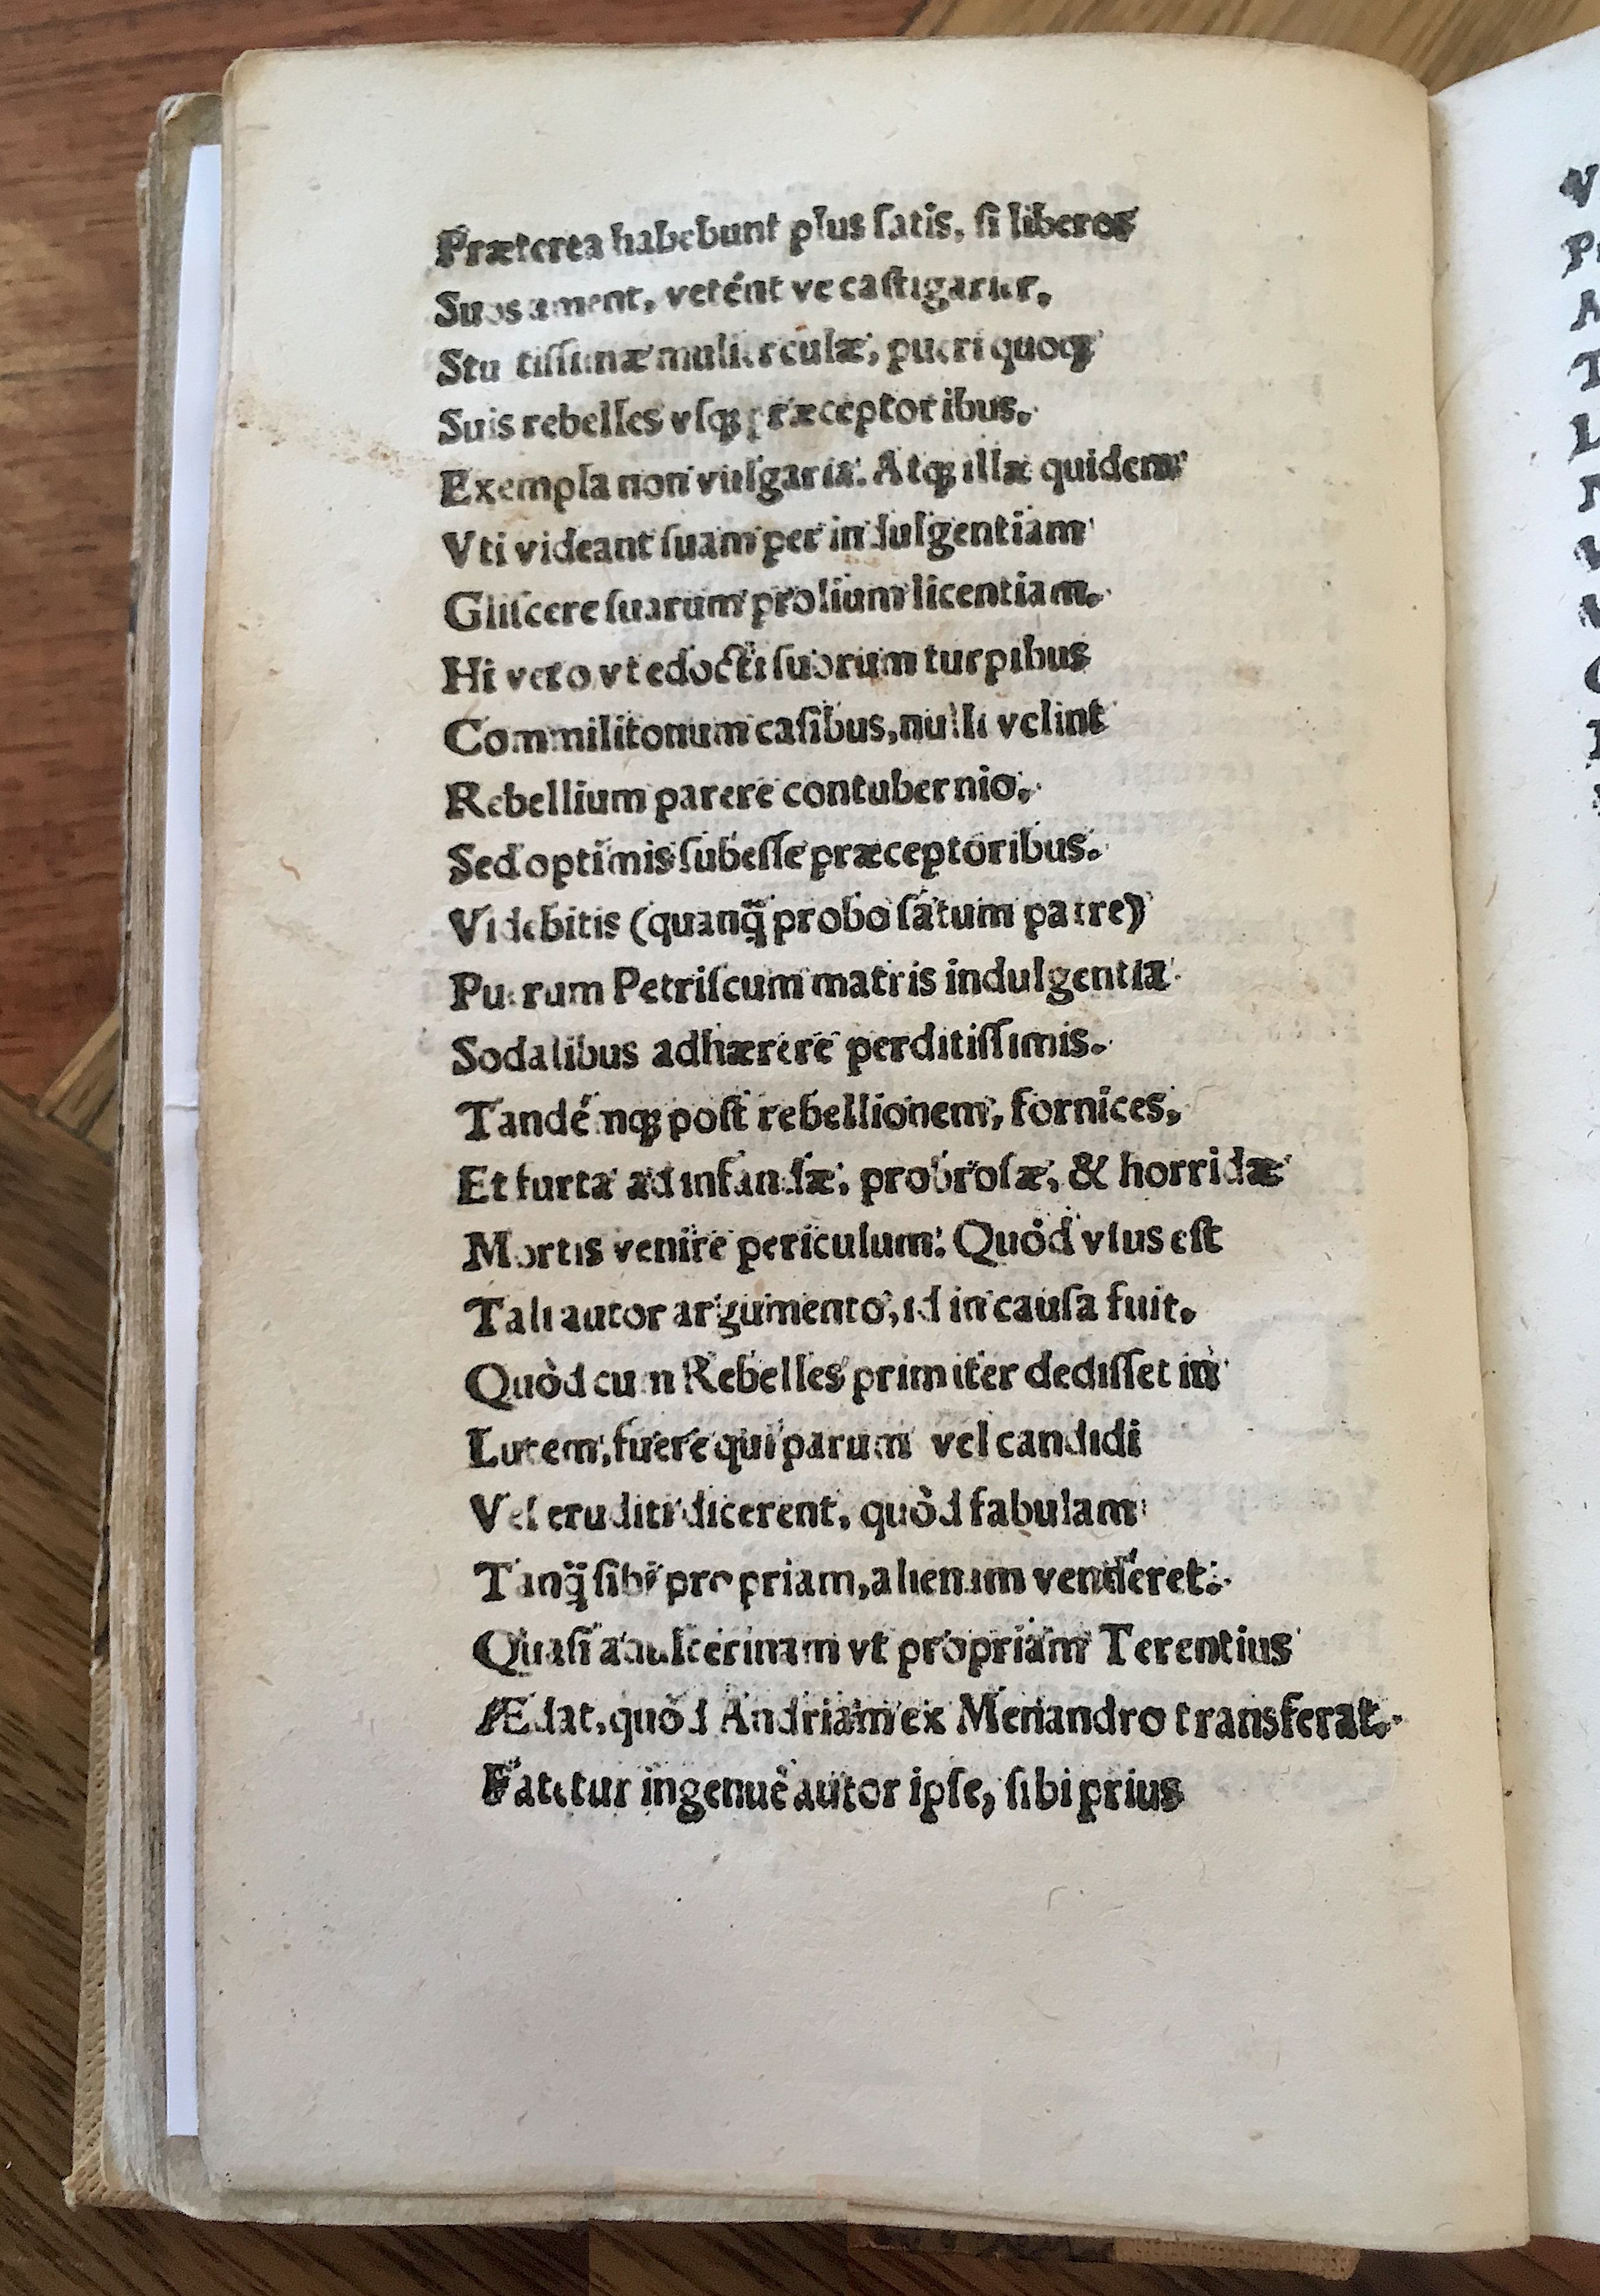 Præterea habebunt plus ſatis, ſi liberos
Suos ament, vetént ve caſtigarier,
Stultiſſimæ mulierculæ, pueri quoqꝫ
Suis rebelles vſqꝫ præceptoribus.
Exempla non vulgaria. Atqꝫ illæ quidem
Vti videant ſuam per indulgentiam
Gliſcere ſuarum prolium licentiam.
Hi vero vt edocti ſuorum turpibus
Commilitonum caſibus, nulli velint
Rebellium parere contubernio.
Sed optimis ſubeſſe præceptoribus.
Videbitis (quanq̃ probo ſatum patre)
Puerum Petriſcum matris indulgentia
Sodalibus adhærere perditiſſimis.
Tandémqꝫ poſt rebellionem, fornices,
Et furta ad infandæ, probroſæ, & horridæ
Mortis venire periculum. Quòd vſus eſt
Tali autor argumento, id in cauſa fuit.
Quòd cum Rebelles primiter dediſſet in
Lucem, fuere qui parum vel candidi
Vel eruditi dicerent, quòd fabulam
Tanq̃ ſibi propriam, alienam venderet.
Quaſi adulterinam vt propriam Terentius
Ædat, quòd Andriam ex Menandro transferat.
Fatetur ingenuè autor ipſe, ſibi prius